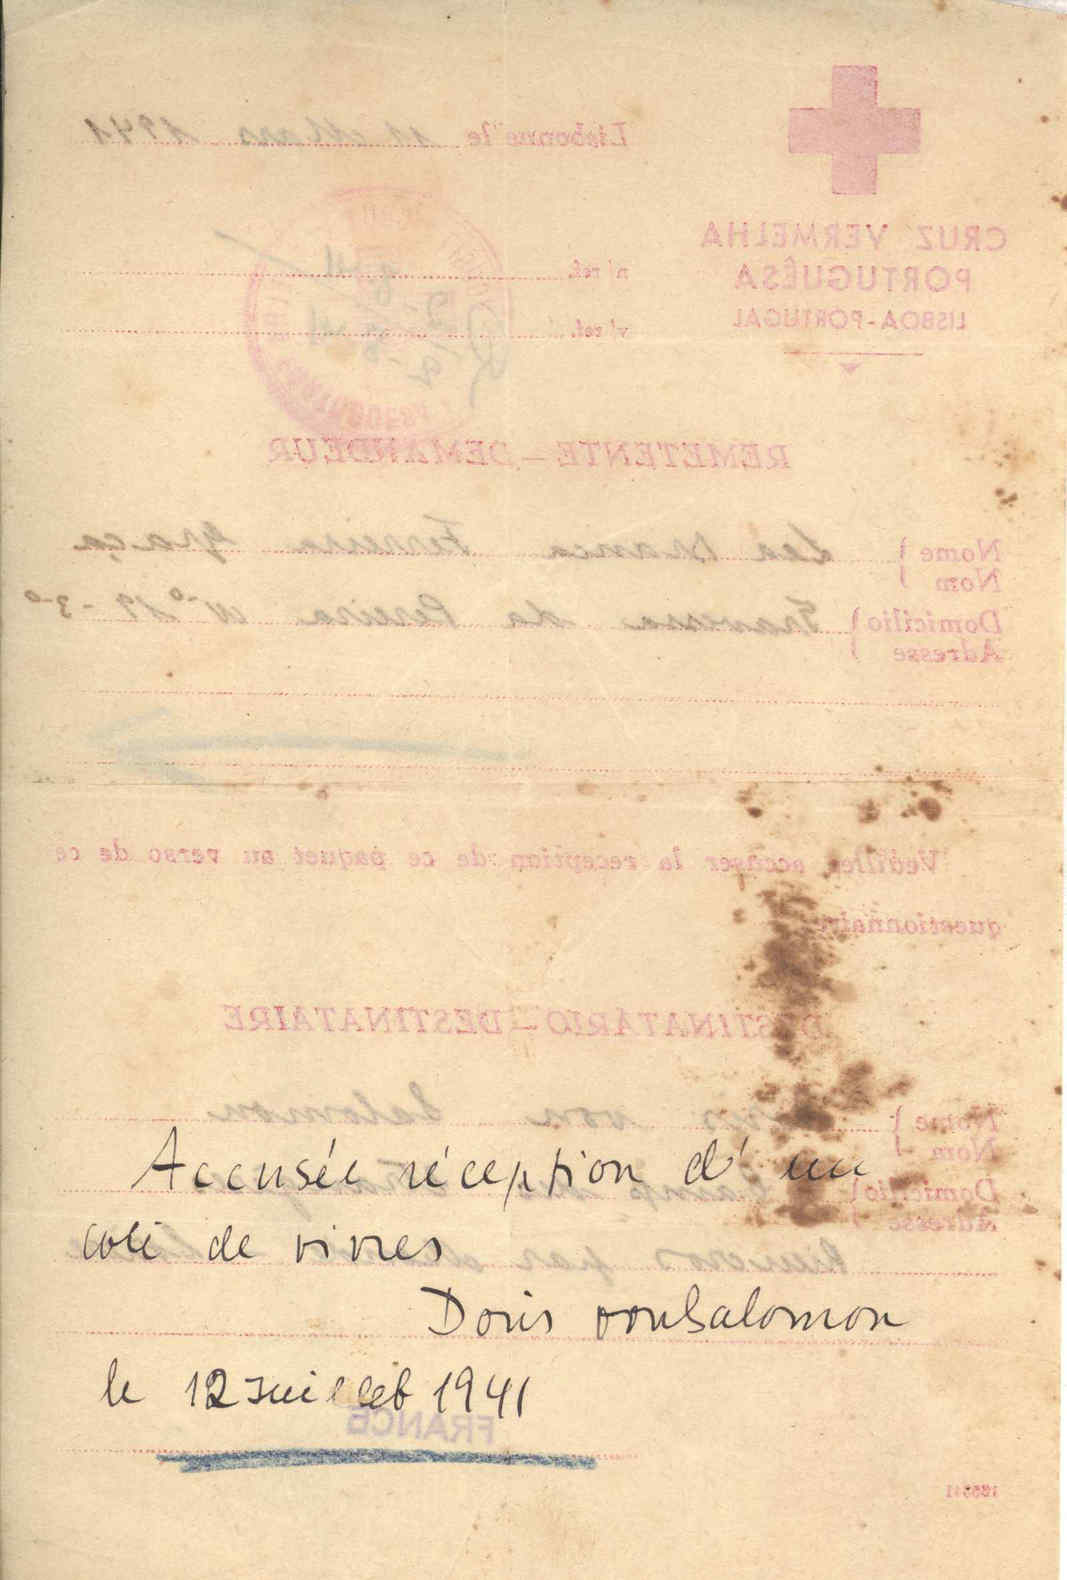 Lisbonne le 11 Mars 1941
CRUZ VERMELHA
PORTUGUÊSA
LISBOA-PORTUGAL
n/ ref.
v/ ref.
REMETENTE — DEMANDEUR
Nome
Nom
Lea Branca Ferreira Graça
Domicilio
Adresse
Travessa da Pereira Nº 19-3º
Veuillez accuser la reception de ce paquet au verso de ce
questionnaire
DESTINATARIO — DESTINATAIRE
Nome
Nom
von Salomon
Domicilio
Adresse
Camp
par
Accusée réception d'un
coli de vivres
Doris von Salomon
le 12 Juillet 1941
FRANCE